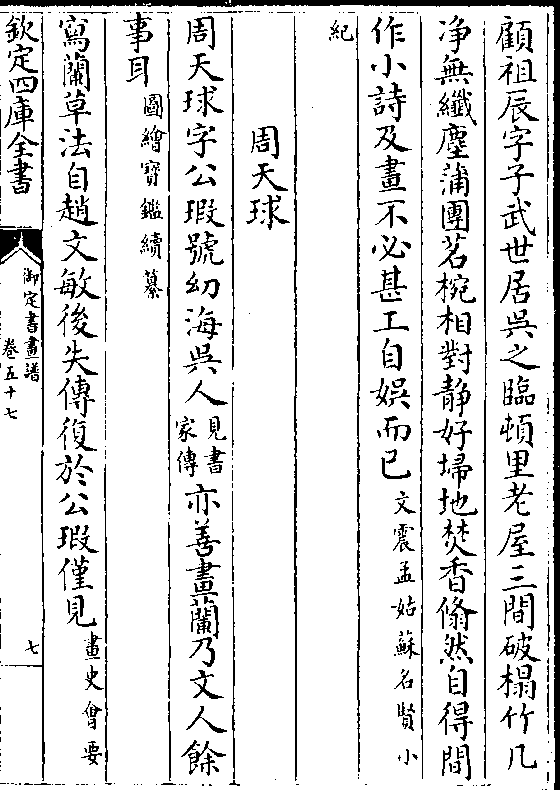 顧祖辰字子武世居吳之臨頓里老屋三間破榻竹几
净無纖塵蒲團茗椀相對静好埽地焚香翛然自得間
作小詩及畫不必甚工自娛而已文震孟姑蘇名賢小
紀
周天球
周天球字公瑕號幼海吳人見書家傳亦善畫蘭乃文人餘
事耳圖繪寶鑑續纂
寫蘭草法自趙文敏後失傳復於公瑕僅見畫史會要
欽定四庫全書
御定書畫譜
卷五十七
七